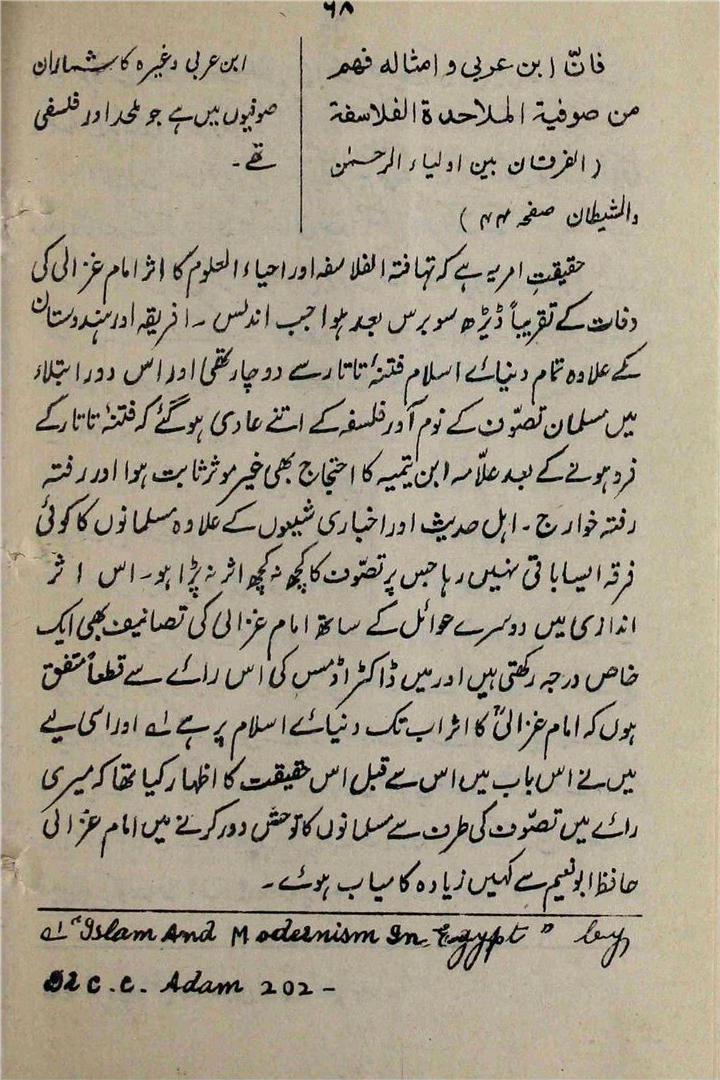 ۶۸
فانّ ابن عربی و امثاله فهم
من صوفیة الملاحدة الفلاسفة
(الفرقان بین اولیاء الرحمٰن
والشیطان صفحه ۴۴)
ابن عربی وغیرہ کا شمار ان
صوفیوں میں ہے جو ملحد اور فلسفی
تھے۔
حقیقتِ امر یہ ہے کہ تہافتہ الفلاسفہ اور احیاء العلوم کا اثر امام غزالی کی
وفات کے تقریباً ڈیڑھ سو برس بعد ہوا جب اندلس ۔ افریقہ اور ہندوستان
کے علاوہ تمام دنیائے اسلام فتنۂ تاتار سے دو چار تھی اور اس دور ابتلاء
میں مسلمان تصوّف کے نوم آور فلسفہ کے اتنے عادی ہو گئے کہ فتنۂ تاتار کے
فرو ہونے کے بعد علّامہ ابن تیمیہ کا احتجاج بھی غیر موثر ثابت ہوا اور رفتہ
رفتہ خوارج ۔ اہل حدیث اور اخباری شیعوں کے علاوہ مسلمانوں کا کوئی
فرقہ ایسا باقی نہیں رہا جس پر تصوّف کا کچھ نہ کچھ اثر نہ پڑا ہو۔ اس اثر
اندازی میں دوسرے عوائل کے ساتھ امام غزالی کی تصانیف بھی ایک
خاص درجہ رکھتی ہیں اور میں ڈاکٹر اڈمس کی اس رائے سے قطعاً متفق
ہوں کہ امام غزالیؒ کا اثر اب تک دنیائے اسلام پر ہے لہ اور اسی لیے
میں نے اس باب میں اس سے قبل اس حقیقت کا اظہار کیا تھا کہ میری
رائے میں تصوّف کی طرف سے مسلمانوں کا توحش دور کرنے میں امام غزالی
حافظ ابو نعیم سے کہیں زیادہ کامیاب ہوئے۔
لہ "Islam And Modernism In Egypt" by
Dr C.C. Adam 202 –